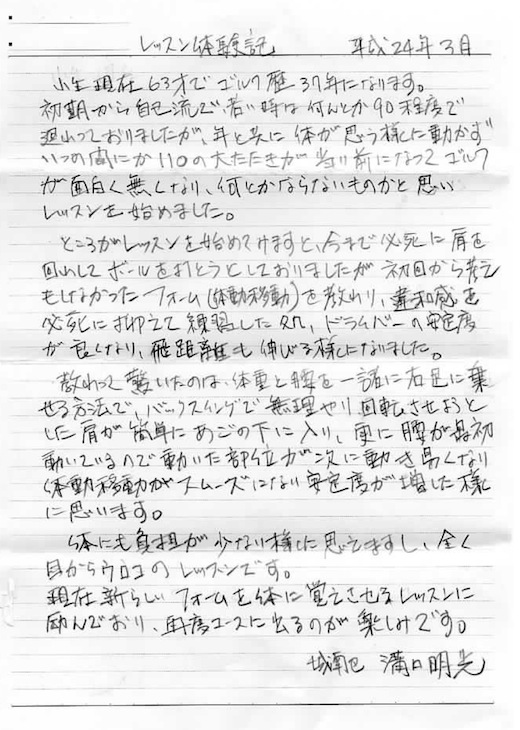 レッスン体験記 平成24年3月
小生現在63才でゴルフ歴37年になります。
初期から自己流で、若い時は何んとか90程度で
廻わっておりましたが、年と共に体が思う様に動かず
いつの間にか110の大たたきが当り前になってゴルフ
が面白く無くなり、何とかならないものかと思い
レッスンを始めました。
ところがレッスンを始めてみますと、今まで必死に肩を
回わしてボールを打とうとしておりましたが初回から考え
もしなかったフォーム(体動移動)を教わり、違和感を
必死に抑えて練習した処、ドライバーの安定度
が良くなり、飛距離も伸びる様になりました。
教わって驚いたのは、体重と腰を一諸に右足に乗
せる方法で、バックスイングで無理やり回転させようと
した肩が簡単にあごの下に入り、更に腰が最初
動いているので動いた部位が次に動き易くなり
体動移動がスムーズになり安定度が増した様
に思います。
体にも負担が少ない様に思えますし、全く
目からウロコのレッスンです。
現在新らしいフォームを体に覚えさせるレッスンに
励んでおり、毎度コースに出るのが楽しみです。
溝口明光